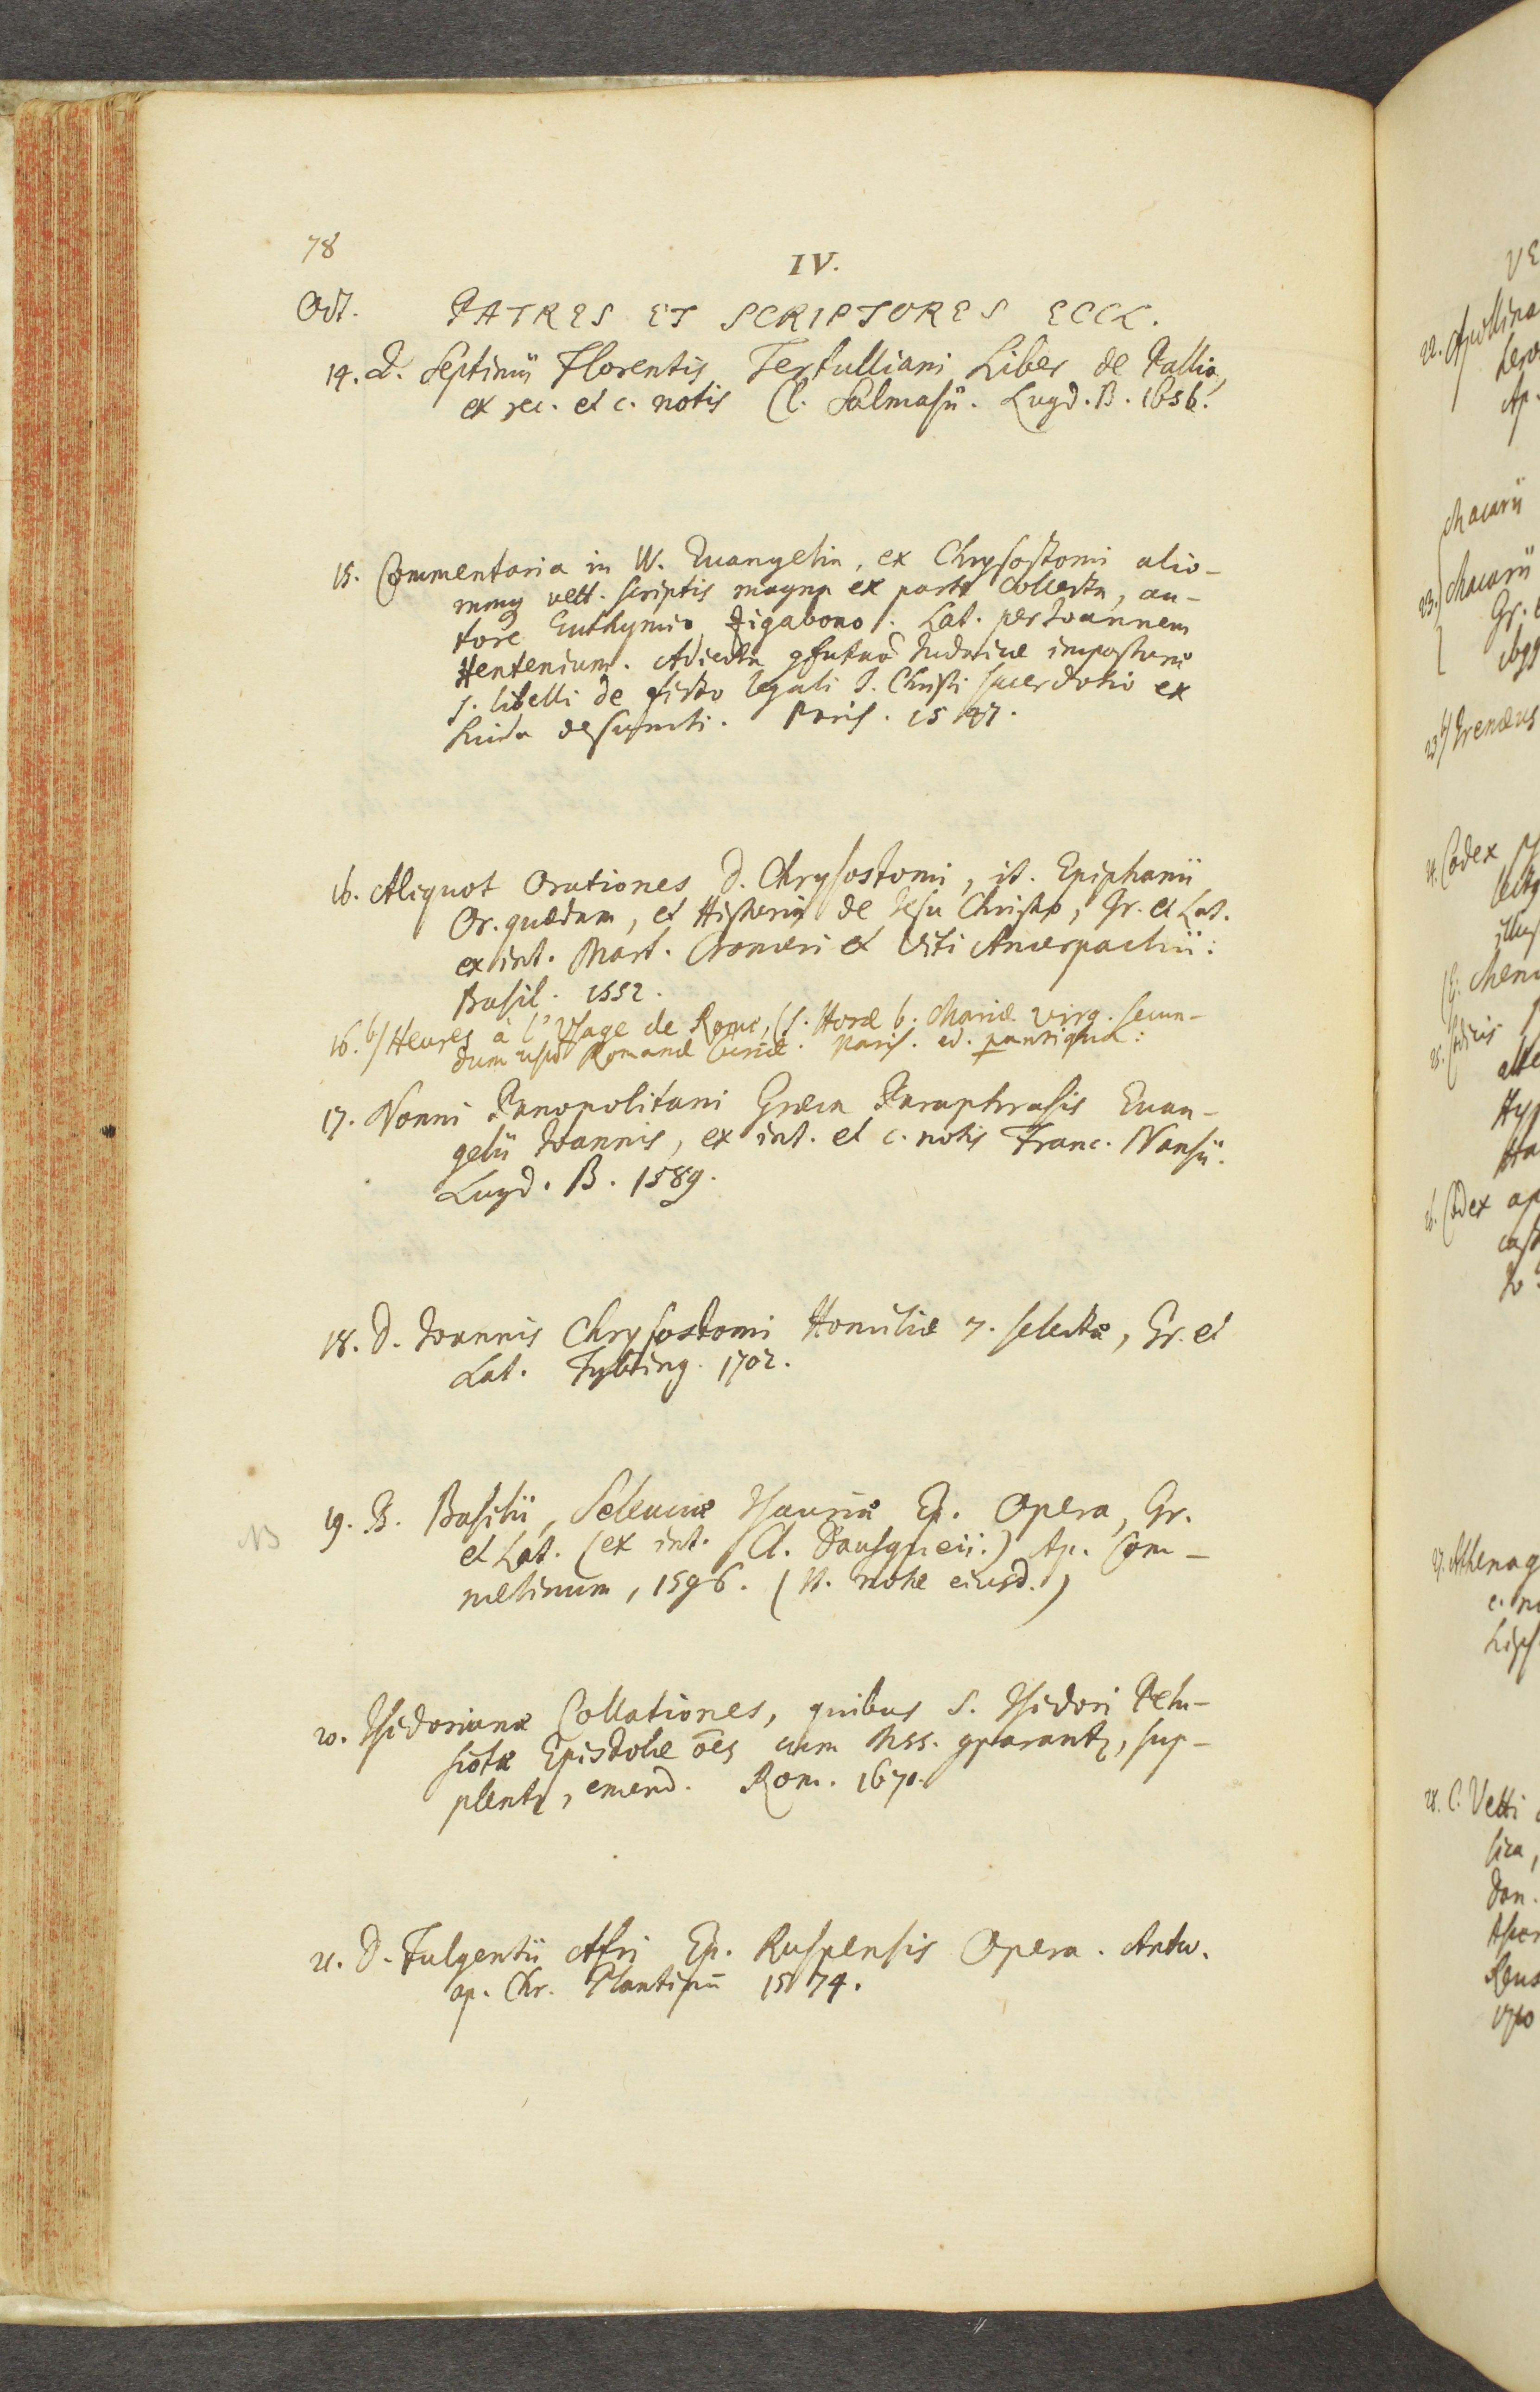 78
IV.
Oct. PATRES ET SCRIPTORES ECCL.
14. Q. Septimii Florentis Tertulliani Liber de Pallio,
ex rec. et c. notis Cl. Salmasii. Lugd. B. 1656.
15. Commentaria in IV. Euangelia, ex Chrysostomi alio-
rumq vett. scriptis magna ex parte collecta, au-
tore Euthymio Zigabono. Lat. per Ioannem
Hentenium. Adiecta Iudaicae imposturae
s. libelli de ficto legali I. Christi sacerdotio ex
Suida desumti. Paris. 1547.
16. Aliquot Orationes D. Chrysostomi, it. Epiphanii
Or. quaedam, et Historia de Iesu Christo, Gr. et Lat.
ex int. Mart. Cromeri et Viti Amerpachii:
Basil. 1552.
16. b/ Heures à l'Usage de Rome, (s. Horæ b. Mariæ virg. secun-
dum usū Romanæ Curiæ. Paris. ed. pantiqua:
17. Nonni Panopolitani Græca Paraphrasis Euan-
gelii Ioannis, ex int. et c. notis Franc. Nansii.
Lugd. B. 1589.
18. D. Ioannis Chrysostomi Homiliæ 7. selectæ, Gr. et
Lat. Tybing. 1702.
NB
19. B. Basilii, Seleuciæ Isauriæ Ep. Opera, Gr.
et Lat. (ex int. Cl. Dausqueii.) Ap. Com-
melinum, 1596. (It. notæ eiusd.)
20. Isidorianæ Collationes, quibus S. Isidori Pelu-
siotæ Epistolæ oēs cum Mss. , sup-
, emend. Rom. 1670.
21. D. Fulgentii Afri Ep. Ruspensis Opera. Antw.
ap. Chr. Plantinū 1574.